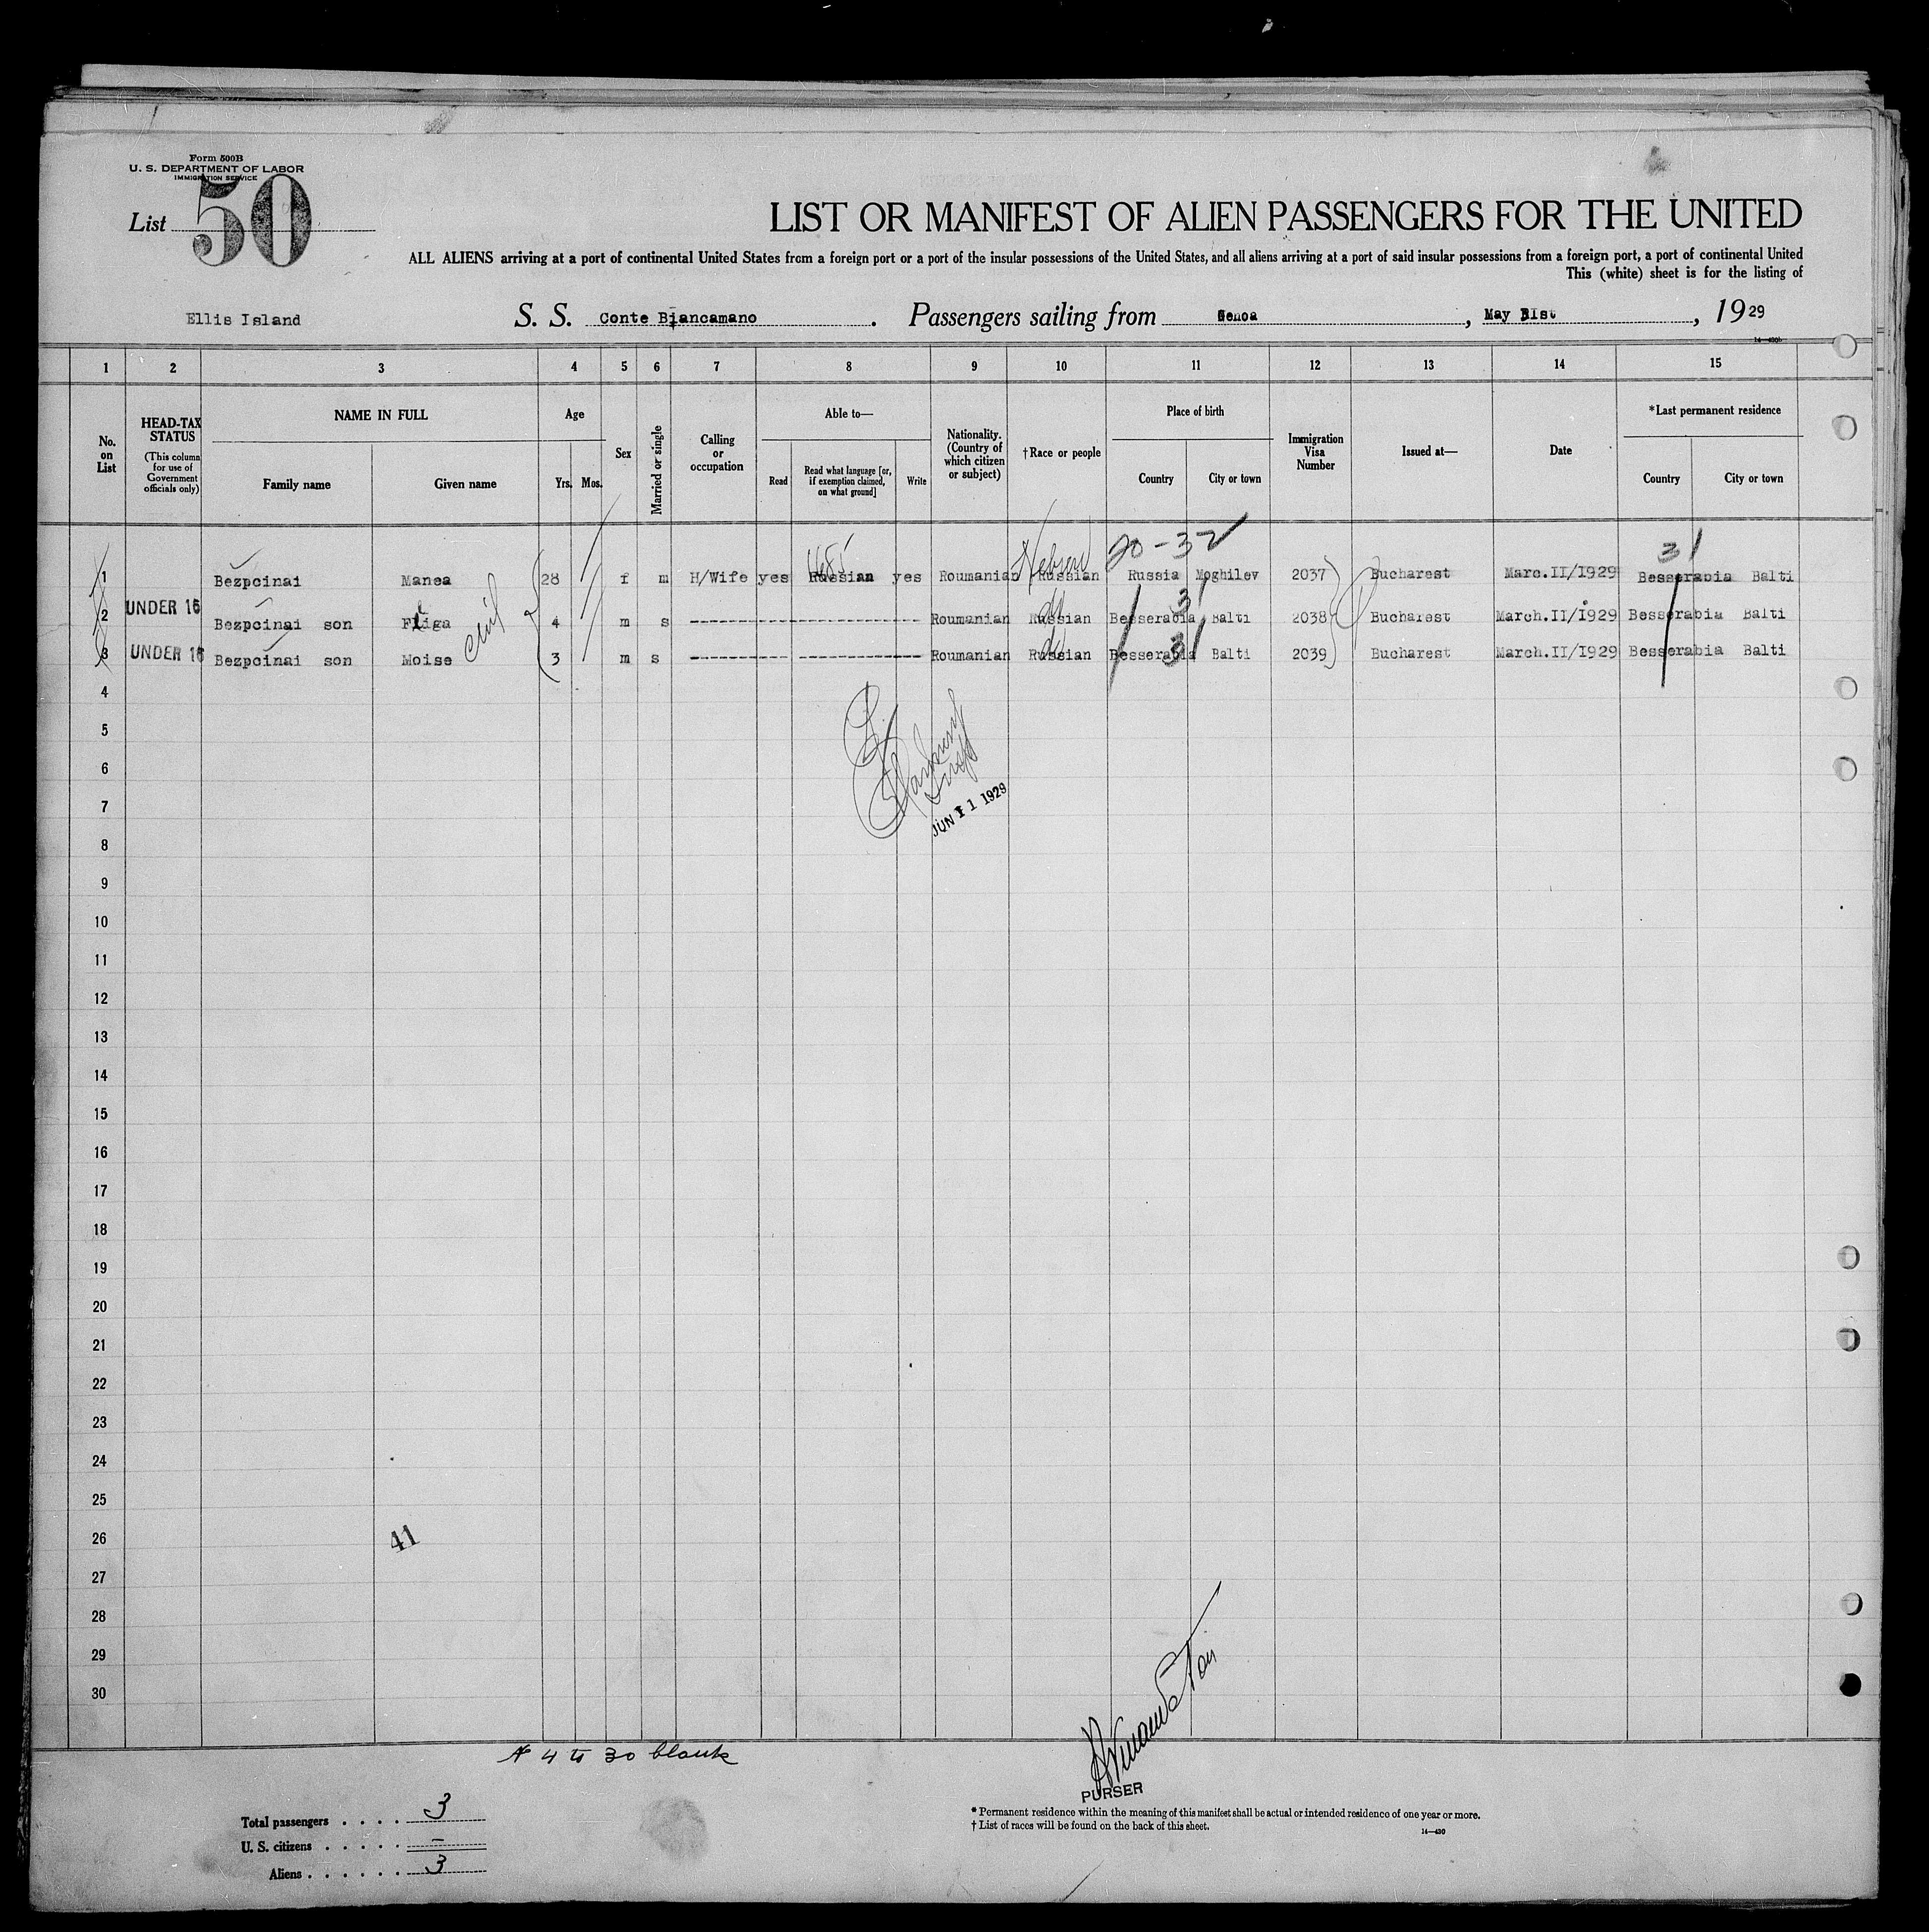 Form 500B
U. S. DEPARTMENT OF LABOR
IMMIGRATION SERVICE
List 50
LIST OR MANIFEST OF ALIEN PASSENGERS FOR THE UNITED
ALL ALIENS arriving at a port of continental United States from a foreign port or a port of the insular possessions of the United States, and all aliens arriving at a port of said insular possessions from a foreign port, a port of continental United
This (white) sheet is for the listing of
Ellis Island S. S. Conte Biancamano. Passengers sailing from Genoa, May 31st, 1929
14—430b
1 2 3 4 5 6 7 8 9 10 11 12 13 14 15
No. on List
HEAD-TAX STATUS
(This column for use of Government officials only)
NAME IN FULL
Family name Given name
Age
Yrs. Mos.
Sex
Married or single
Calling or occupation
Able to—
Read
Read what language [or, if exemption claimed, on what ground]
Write
Nationality. (Country of which citizen or subject)
†Race or people
Place of birth
Country City or town
Immigration Visa Number
Issued at—
Date
*Last permanent residence
Country City or town
Hebrew 20-32 31
1 Bezpcinai Manea 28 f m H/Wife yes Russian yes Roumanian Russian Russia Moghilev 2037 Bucharest Marc.II/1929 Besserabia Balti
2 UNDER 16 Bezpcinai son Fliga 4 m s Roumanian Russian Besserabia Balti 2038 Bucharest March.II/1929 Besserabia Balti
3 UNDER 16 Bezpcinai son Moise 3 m s Roumanian Russian Besserabia Balti 2039 Bucharest March.II/1929 Besserabia Balti
4
5
6
7
JUN 11 1929
8
9
10
11
12
13
14
15
16
17
18
19
20
21
22
23
24
25
26
41
27
28
29
30
No 4 to 30 blank
PURSER
Total passengers . . . . 3
U. S. citizens . . . . . –
Aliens . . . . . . 3
* Permanent residence within the meaning of this manifest shall be actual or intended residence of one year or more.
† List of races will be found on the back of this sheet.
14—430